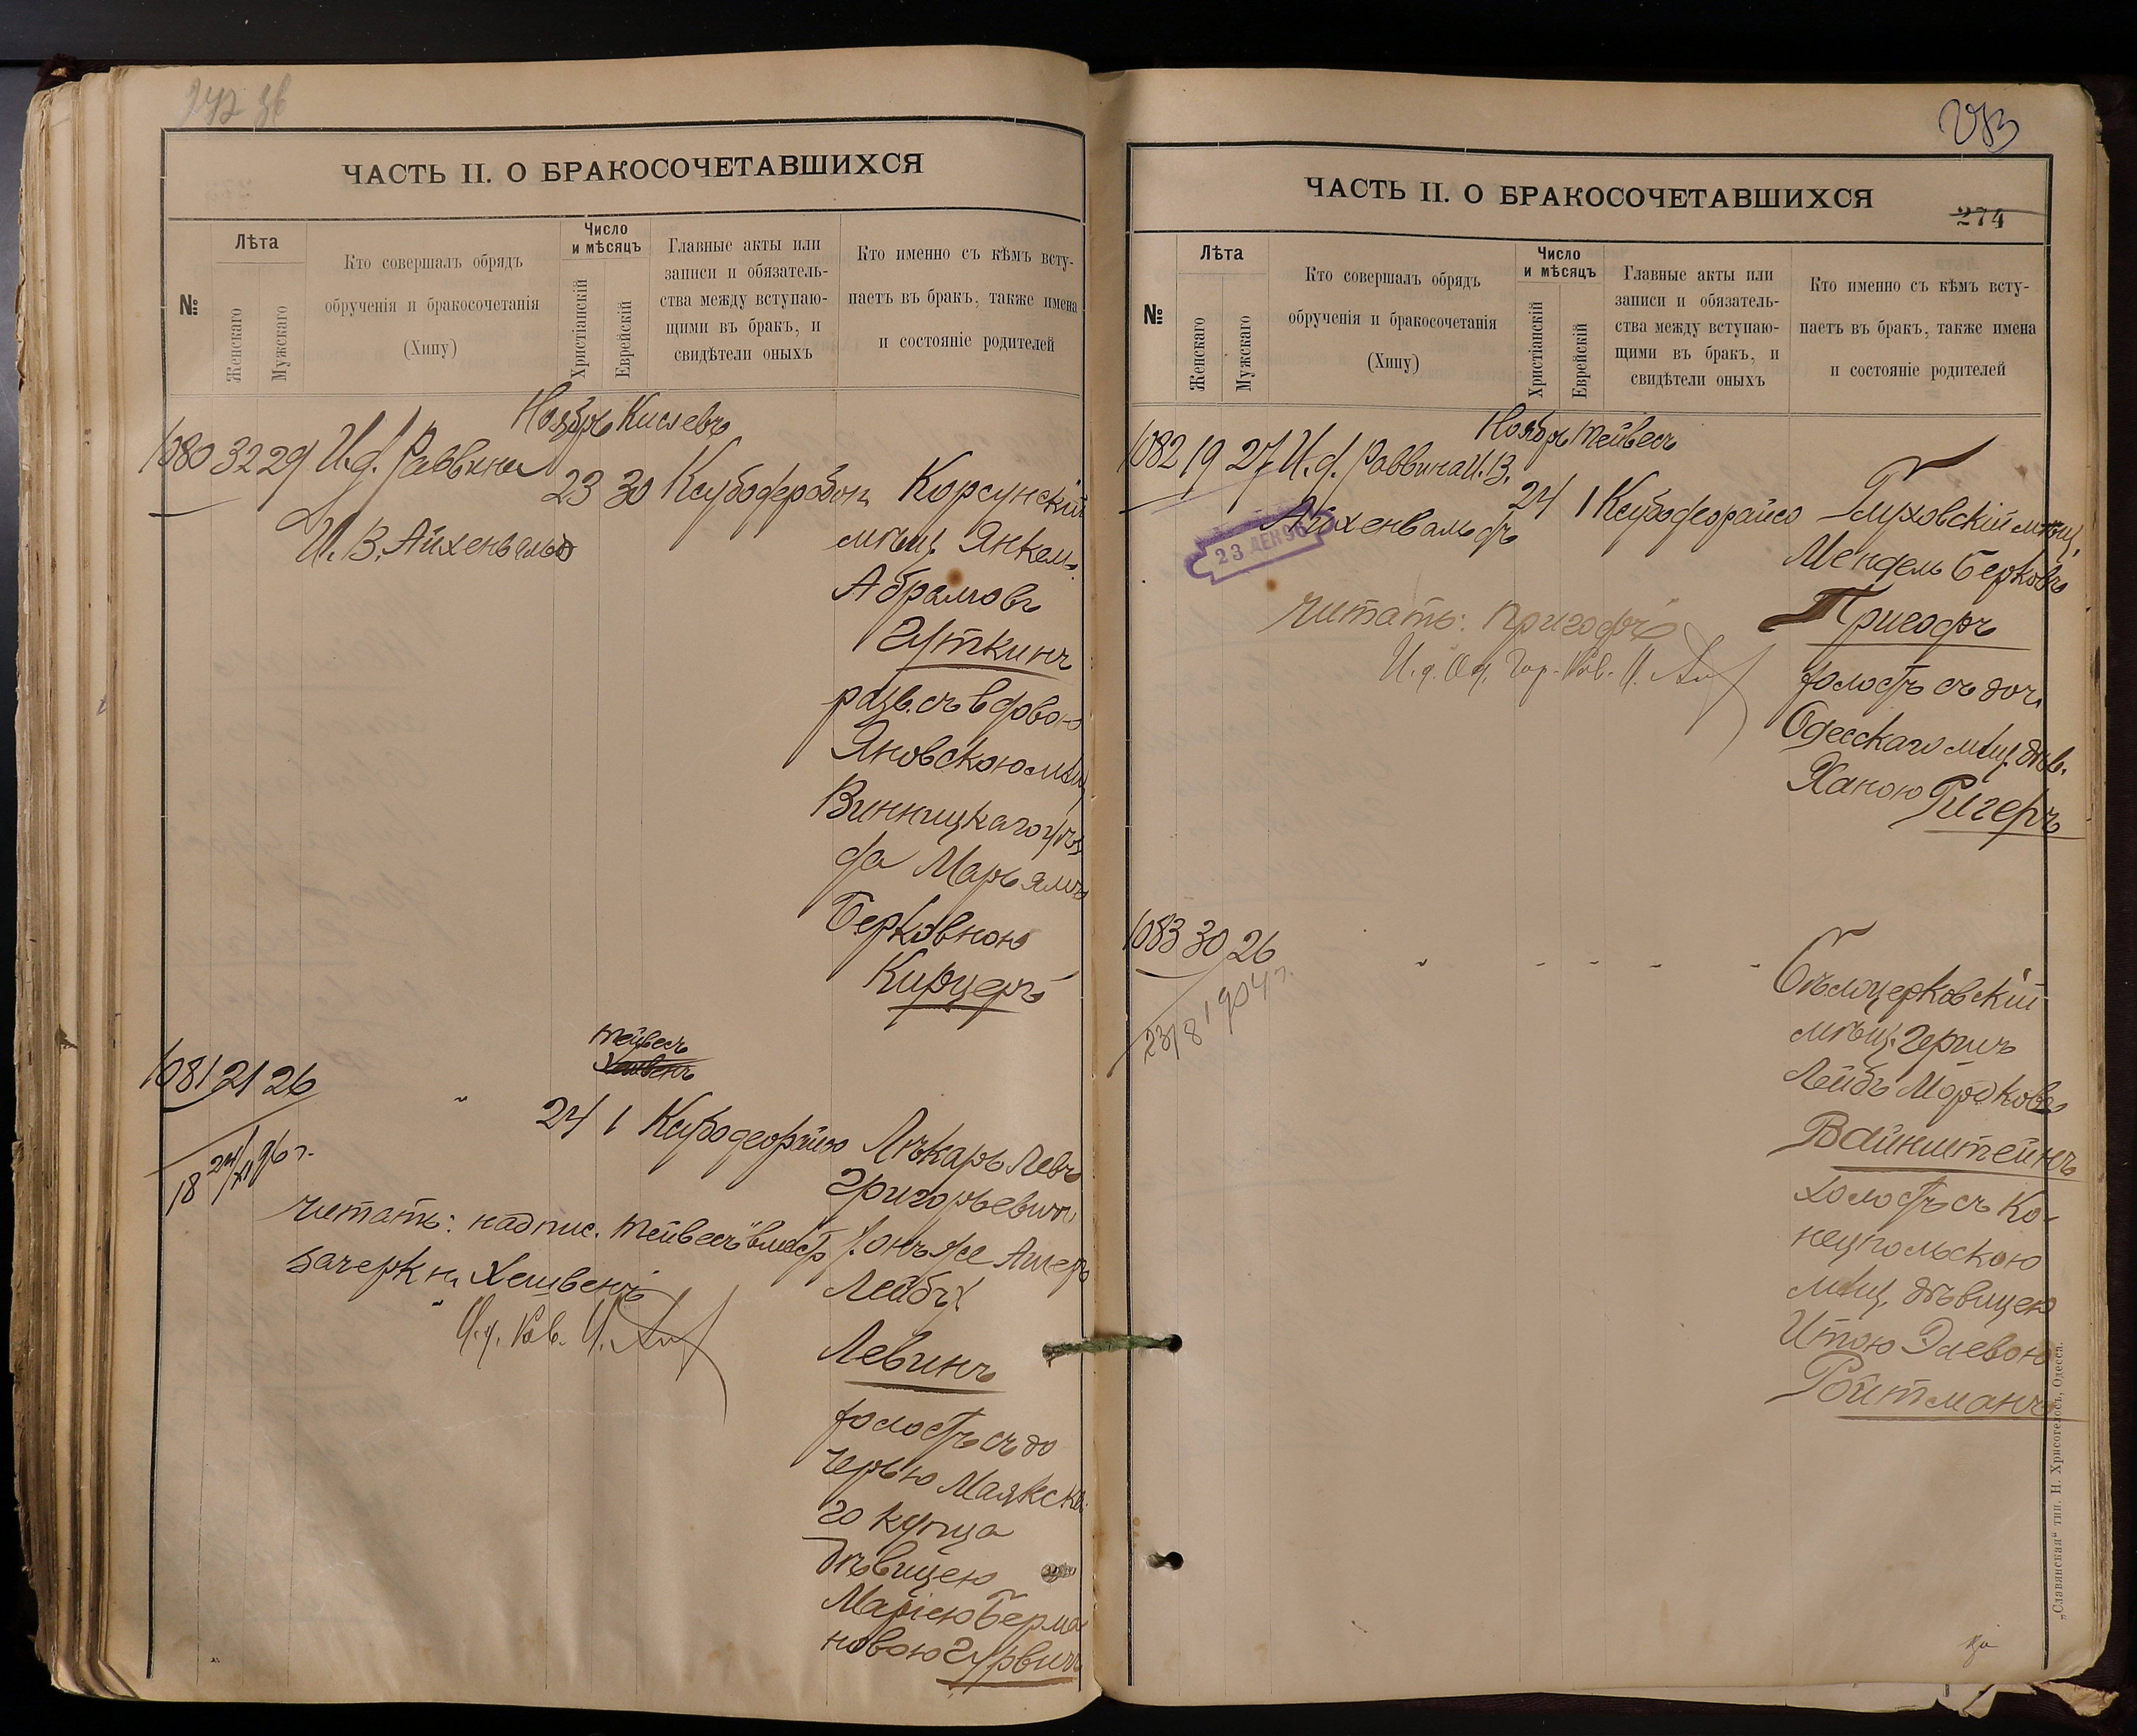 272 зв
ЧАСТЬ II. О БРАКОСОЧЕТАВШИХСЯ
№
Лѣта
Женскаго
Мужскаго
Кто совершалъ обрядъ
обрученія и бракосочетанія
(Хипу)
Число
и мѣсяцъ
Христіанскій
Еврейскій
Главные акты или
записи и обязатель-
ства между вступаю-
щими въ бракъ, и
свидѣтели оныхъ
Кто именно съ кѣмъ всту-
паетъ въ бракъ, также имена
и состояніе родителей
Ноябрь Кислевъ
1080 32 29 И.д. Раввина
И. В. Айхенвальд
23 30
Корсунскій
мѣщ. Янкель
Абрамовъ
Гуткинъ
разв. съ вдовою
Яновскою мѣщ
Винницкаго уѣз
да Марьямъ
Берковною
Кирцеръ
тейвесъ
Хешвенъ
1081 21 26 " 24 1
Лѣкарь Левъ
Григорьевичъ
онъ же Ашеръ
Лейбъ
Левинъ
холостъ съ до
черью Маякска
го купца
дѣвицею
Маріею Герма
новою Гурвичъ
18 24/XI 96 г.
читать: надпис. "тейвесъ" вмѣст
зачеркн. Хешвенъ
И.д. Рав. И.
273
ЧАСТЬ II. О БРАКОСОЧЕТАВШИХСЯ
274
№
Лѣта
Женскаго
Мужскаго
Кто совершалъ обрядъ
обрученія и бракосочетанія
(Хипу)
Число
и мѣсяцъ
Христіанскій
Еврейскій
Главные акты или
записи и обязатель-
ства между вступаю-
щими въ бракъ, и
свидѣтели оныхъ
Кто именно съ кѣмъ всту-
паетъ въ бракъ, также имена
и состояніе родителей
Ноябрь тейвесъ
1082 19 27 И.д. Раввина И. В.
Айхенвальдъ
24 1
23 ДЕК 96
Глуховскій мѣщ.
Мендель Берковъ
Пригодъ
холостъ съ доч.
Одесскаго мѣщ. дѣв.
Ханою Ригеръ
читать: Пригодъ
И.д. Од. Гор. Рав. И.
1083 30 26 " - - - -
23/8 1904 г.
Бѣлоцерковскій
мѣщ. Гершъ
Лейбъ Мордковъ
Вайнштейнъ
холостъ съ Ко-
нецпольскою
мѣщ. дѣвицею
Итою Элевою
Ройтманъ
„Славянская" тип. Н. Хрисогелосъ, Одесса.